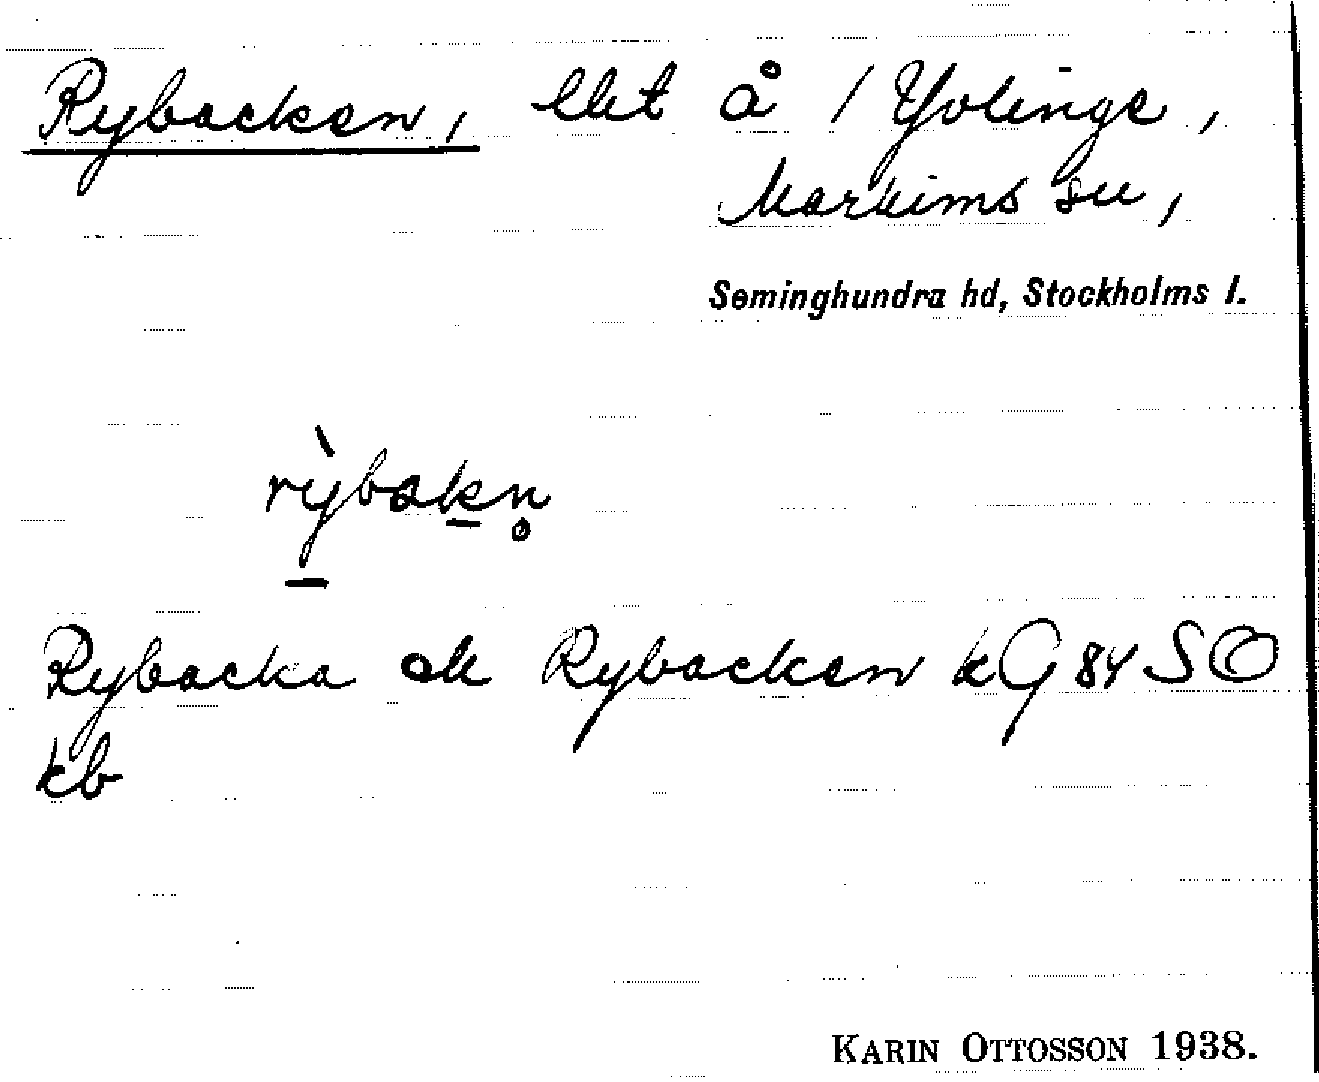 Rybacken, lht å / Yvlinge,
Markims sn,
Seminghundra hd, Stockholms l.
rỳbakn̥
Rybacka ok Rybacken kG 84 SO
kb
KARIN OTTOSSON 1938.